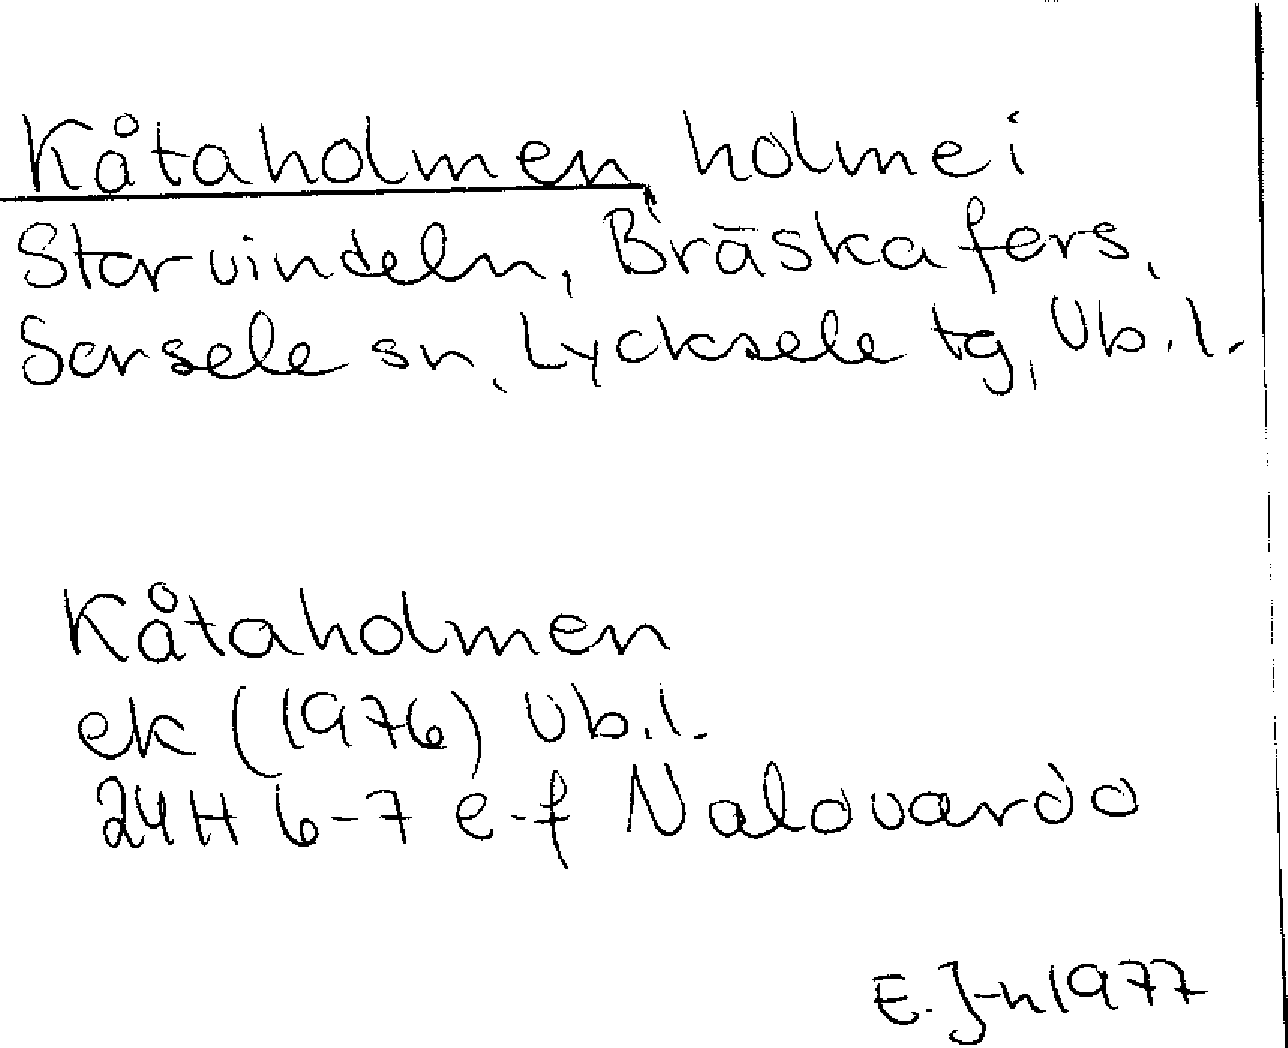 Kåtaholmen holme i
Storvindeln, Bräskafors,
Sorsele sn, Lycksele tg, Vb.l.
Kåtaholmen
ek (1976) Vb.l.
24H 6-7 e-f Nalovardo
E. J-n 1977